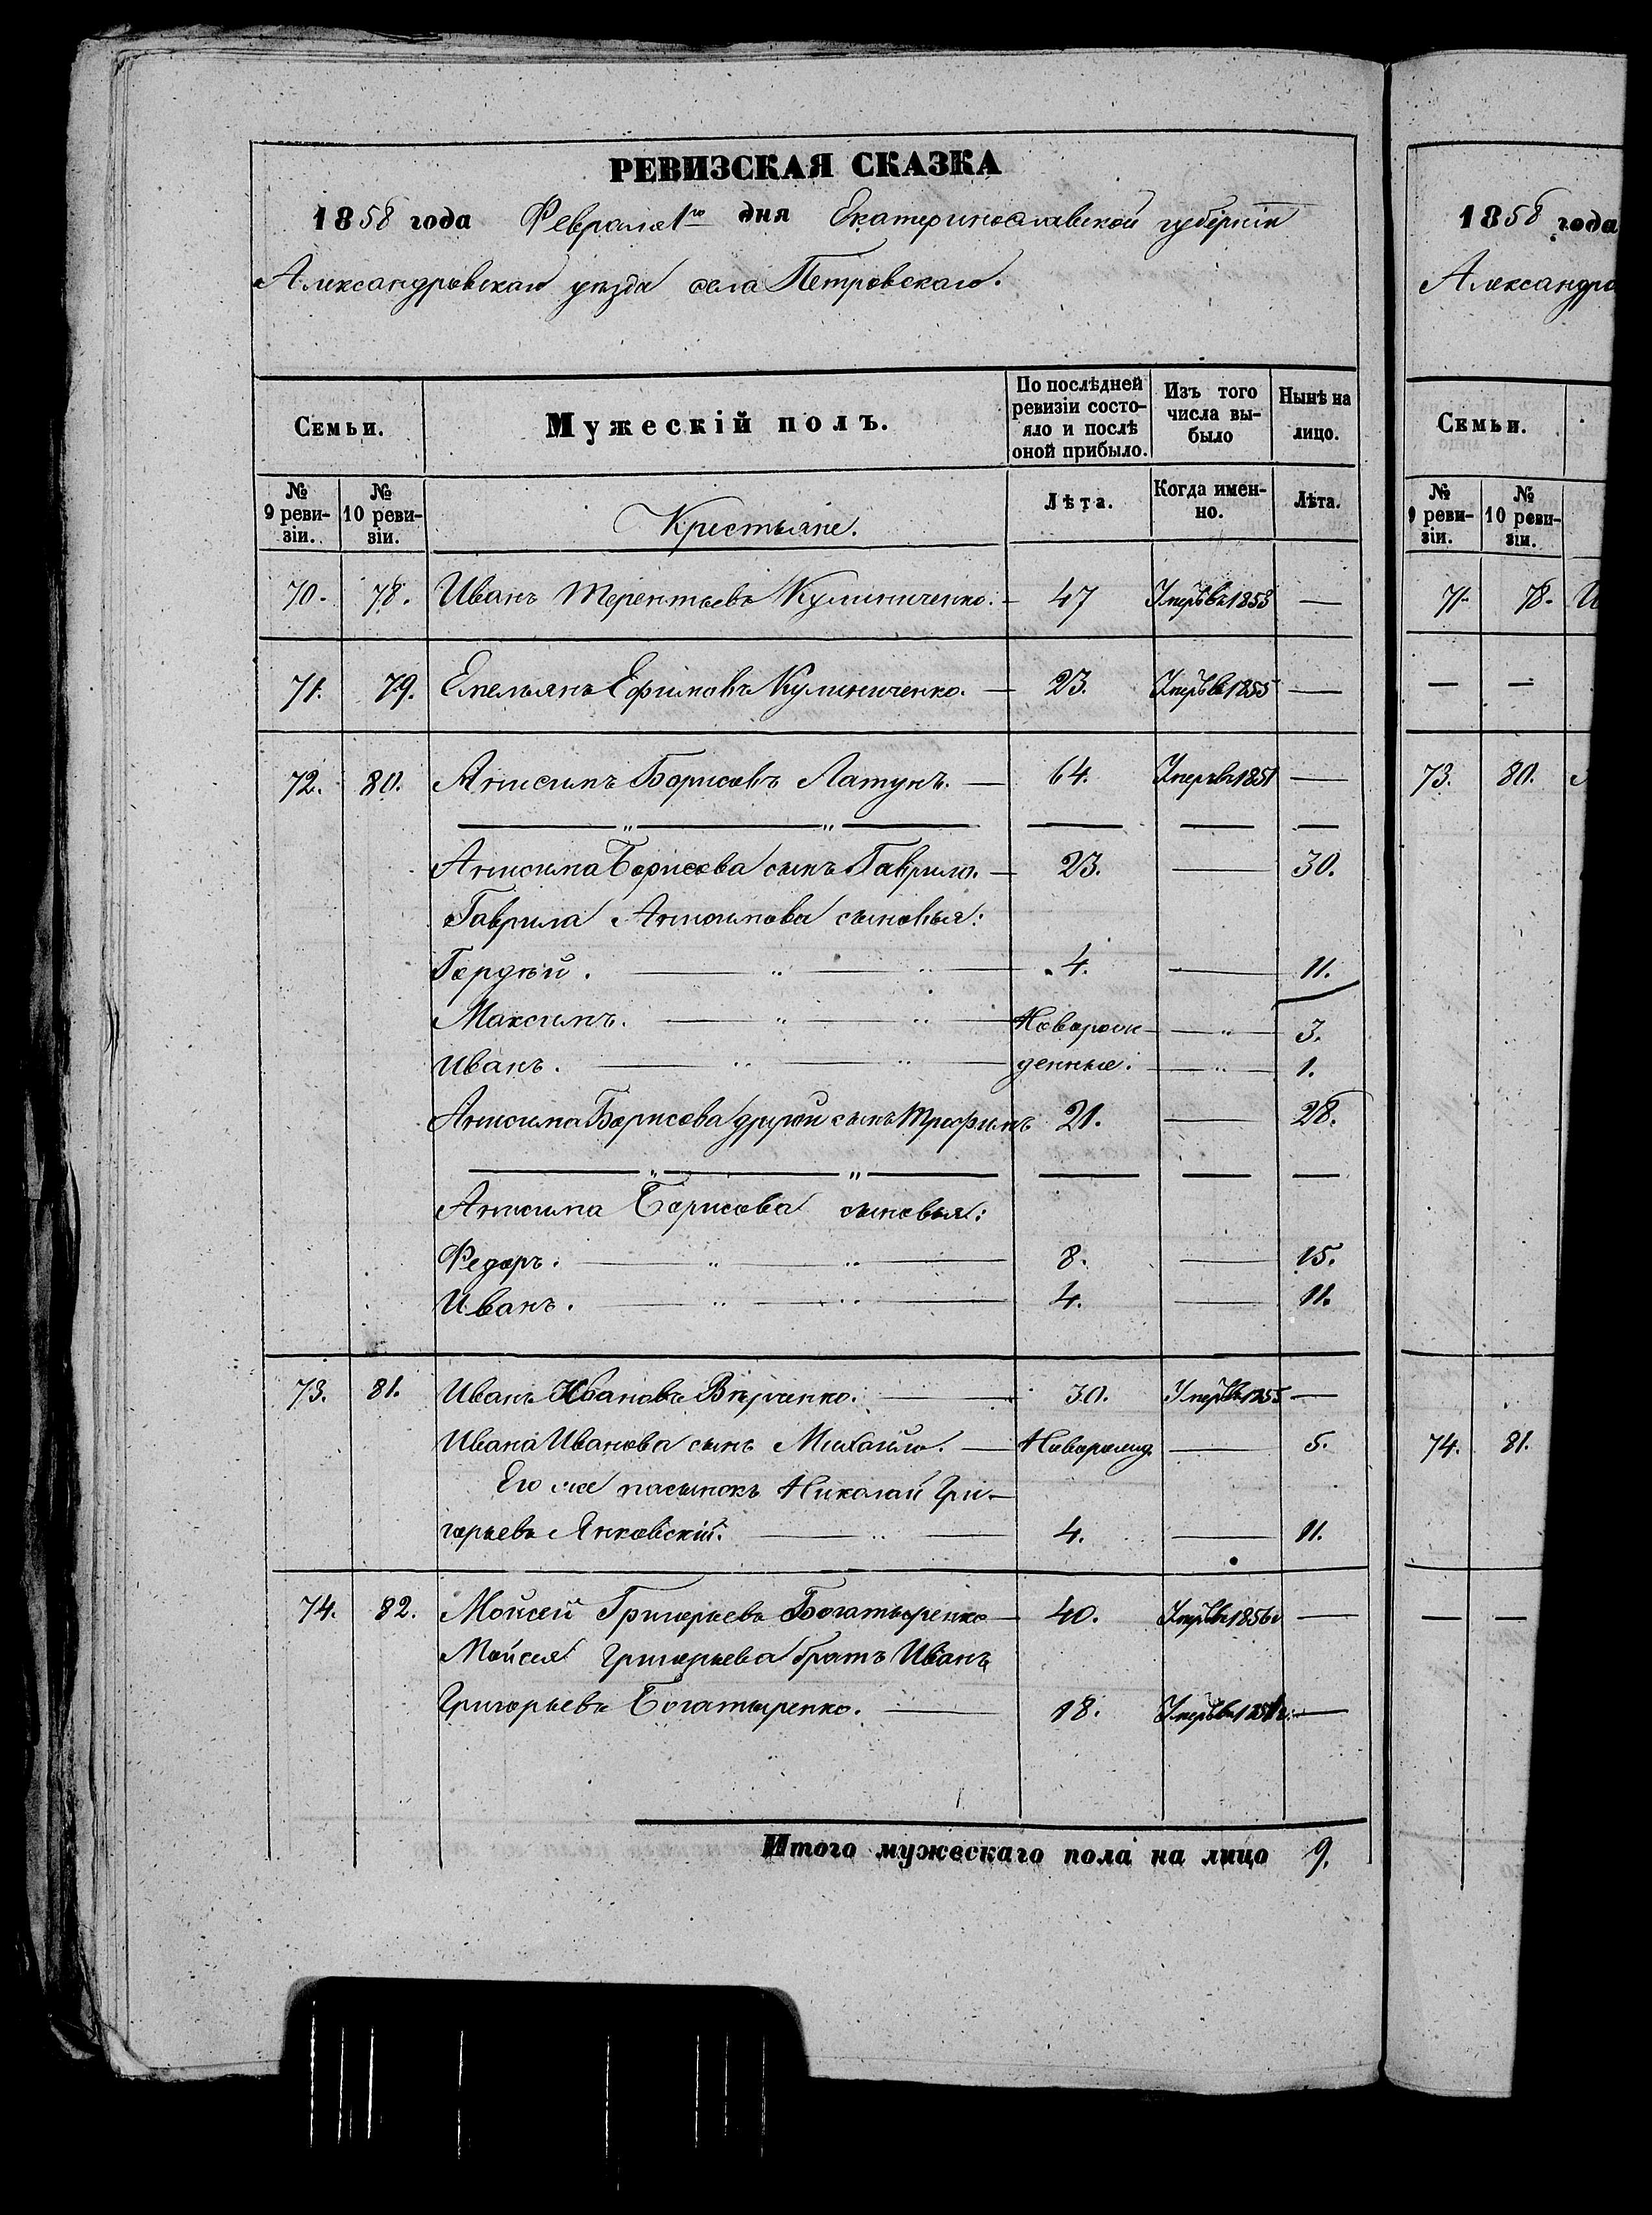 РЕВИЗСКАЯ СКАЗКА
1858 года Февраля 1го дня Екатеринославской губерніи
Александровскаго уѣзда села Петровскаго.
Семьи. Мужескій полъ. По послѣдней ревизіи состояло и послѣ оной прибыло. Изъ того числа выбыло Нынѣ на лицо.
№ 9 ревизіи. № 10 ревизіи. Крестьяне. Лѣта. Когда именно. Лѣта.
70. 78. Иванъ Терентьевъ Кулиниченко. — 47 Умеръ въ 1853 —
71. 79. Емельянъ Ефимовъ Кулиниченко. — 23. Умеръ въ 1855 —
72. 80. Анисимъ Борисовъ Латунъ. — 64. Умеръ въ 1851 —
Анисима Борисова сынъ Гаврило. — 23. — 30.
Гаврила Анисимова сыновья:
Гордѣй. 4. — 11.
Максимъ. Новорож- — 3.
Иванъ. денные. — 1.
Анисима Борисова другой сынъ Трофимъ 21. — 28.
Анисима Борисова сыновья:
Федоръ. 8. — 15.
Иванъ. 4. — 11.
73. 81. Иванъ Ивановъ 30. Умеръ въ 1855 —
Ивана Иванова сынъ Михайло. — Новорожд. — 5.
Его же пасынокъ Николай Гри-
горьевъ Янковскій. 4. — 11.
74. 82. Мойсей Григорьевъ Богатыренко — 40. Умеръ въ 1856 —
Мойсея Григорьева братъ Иванъ
Григорьевъ Богатыренко. — 18. Умеръ въ —
Итого мужескаго пола на лицо 9.
1858 года
Александро
Семьи.
№ 9 ревизіи. № 10 ревизіи.
71. 78. И
— —
73. 80.
74. 81.
— —